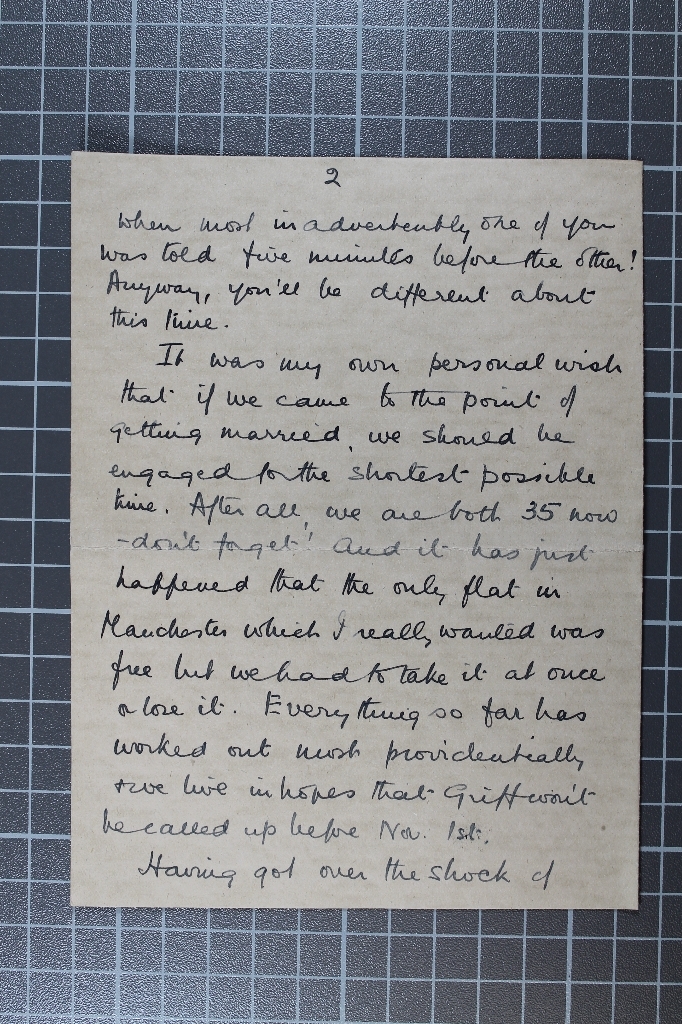 2
when most inadvertently one of you
was told five minutes before the other!
Anyway, you'll be different about
this time.
It was my own personal wish
that if we came to the point of
getting married, we should be
engaged for the shortest possible
time. After all, we are both 35 now
- don't forget! And it has just
happened that the only flat in
Manchester which I really wanted was
free but we had to take it at once
or lose it. Everything so far has
worked out most providentially
& we live in hopes that Griff won't
be called up before Nov. 1st.
Having got over the shock of